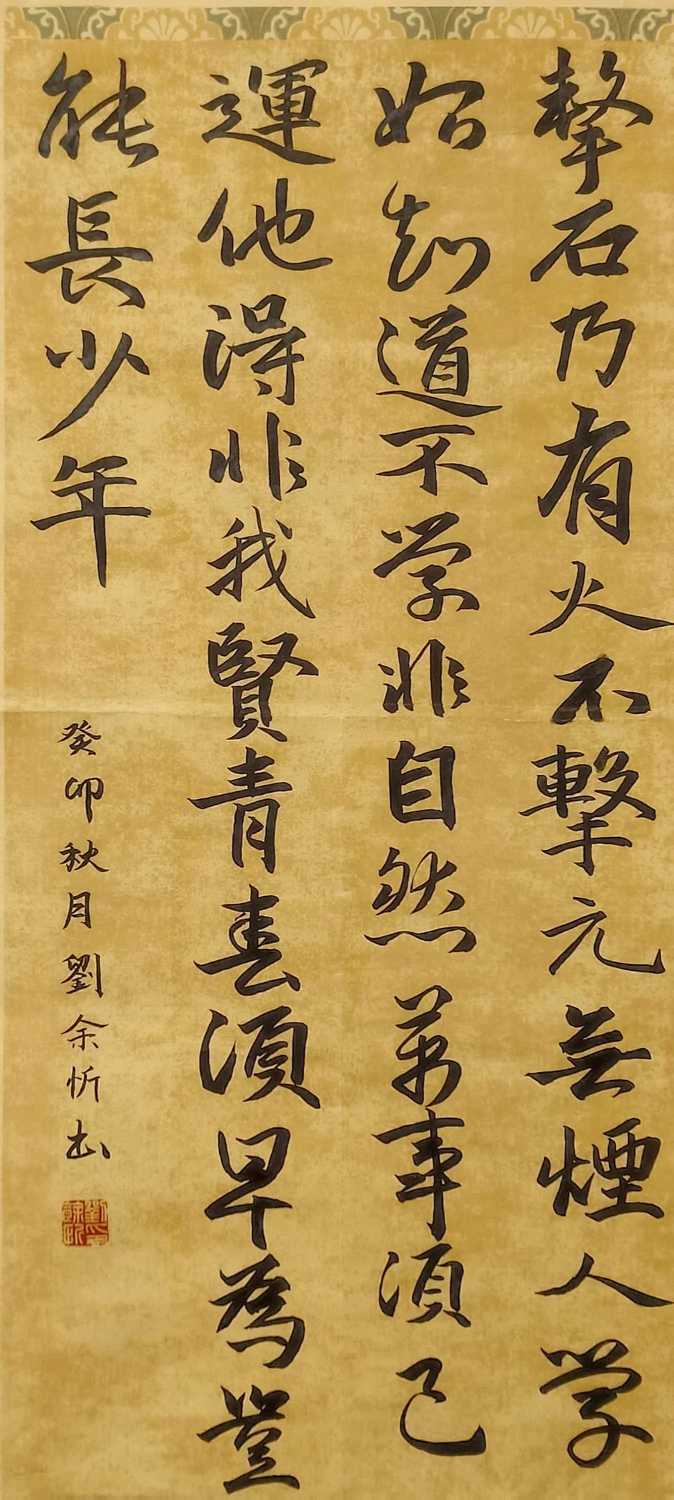 擊石乃有火不擊元無煙人学
始知道不学非自然萬事須己
運他得非我賢青春須早為豈
能長少年
癸卯秋月劉余忻書